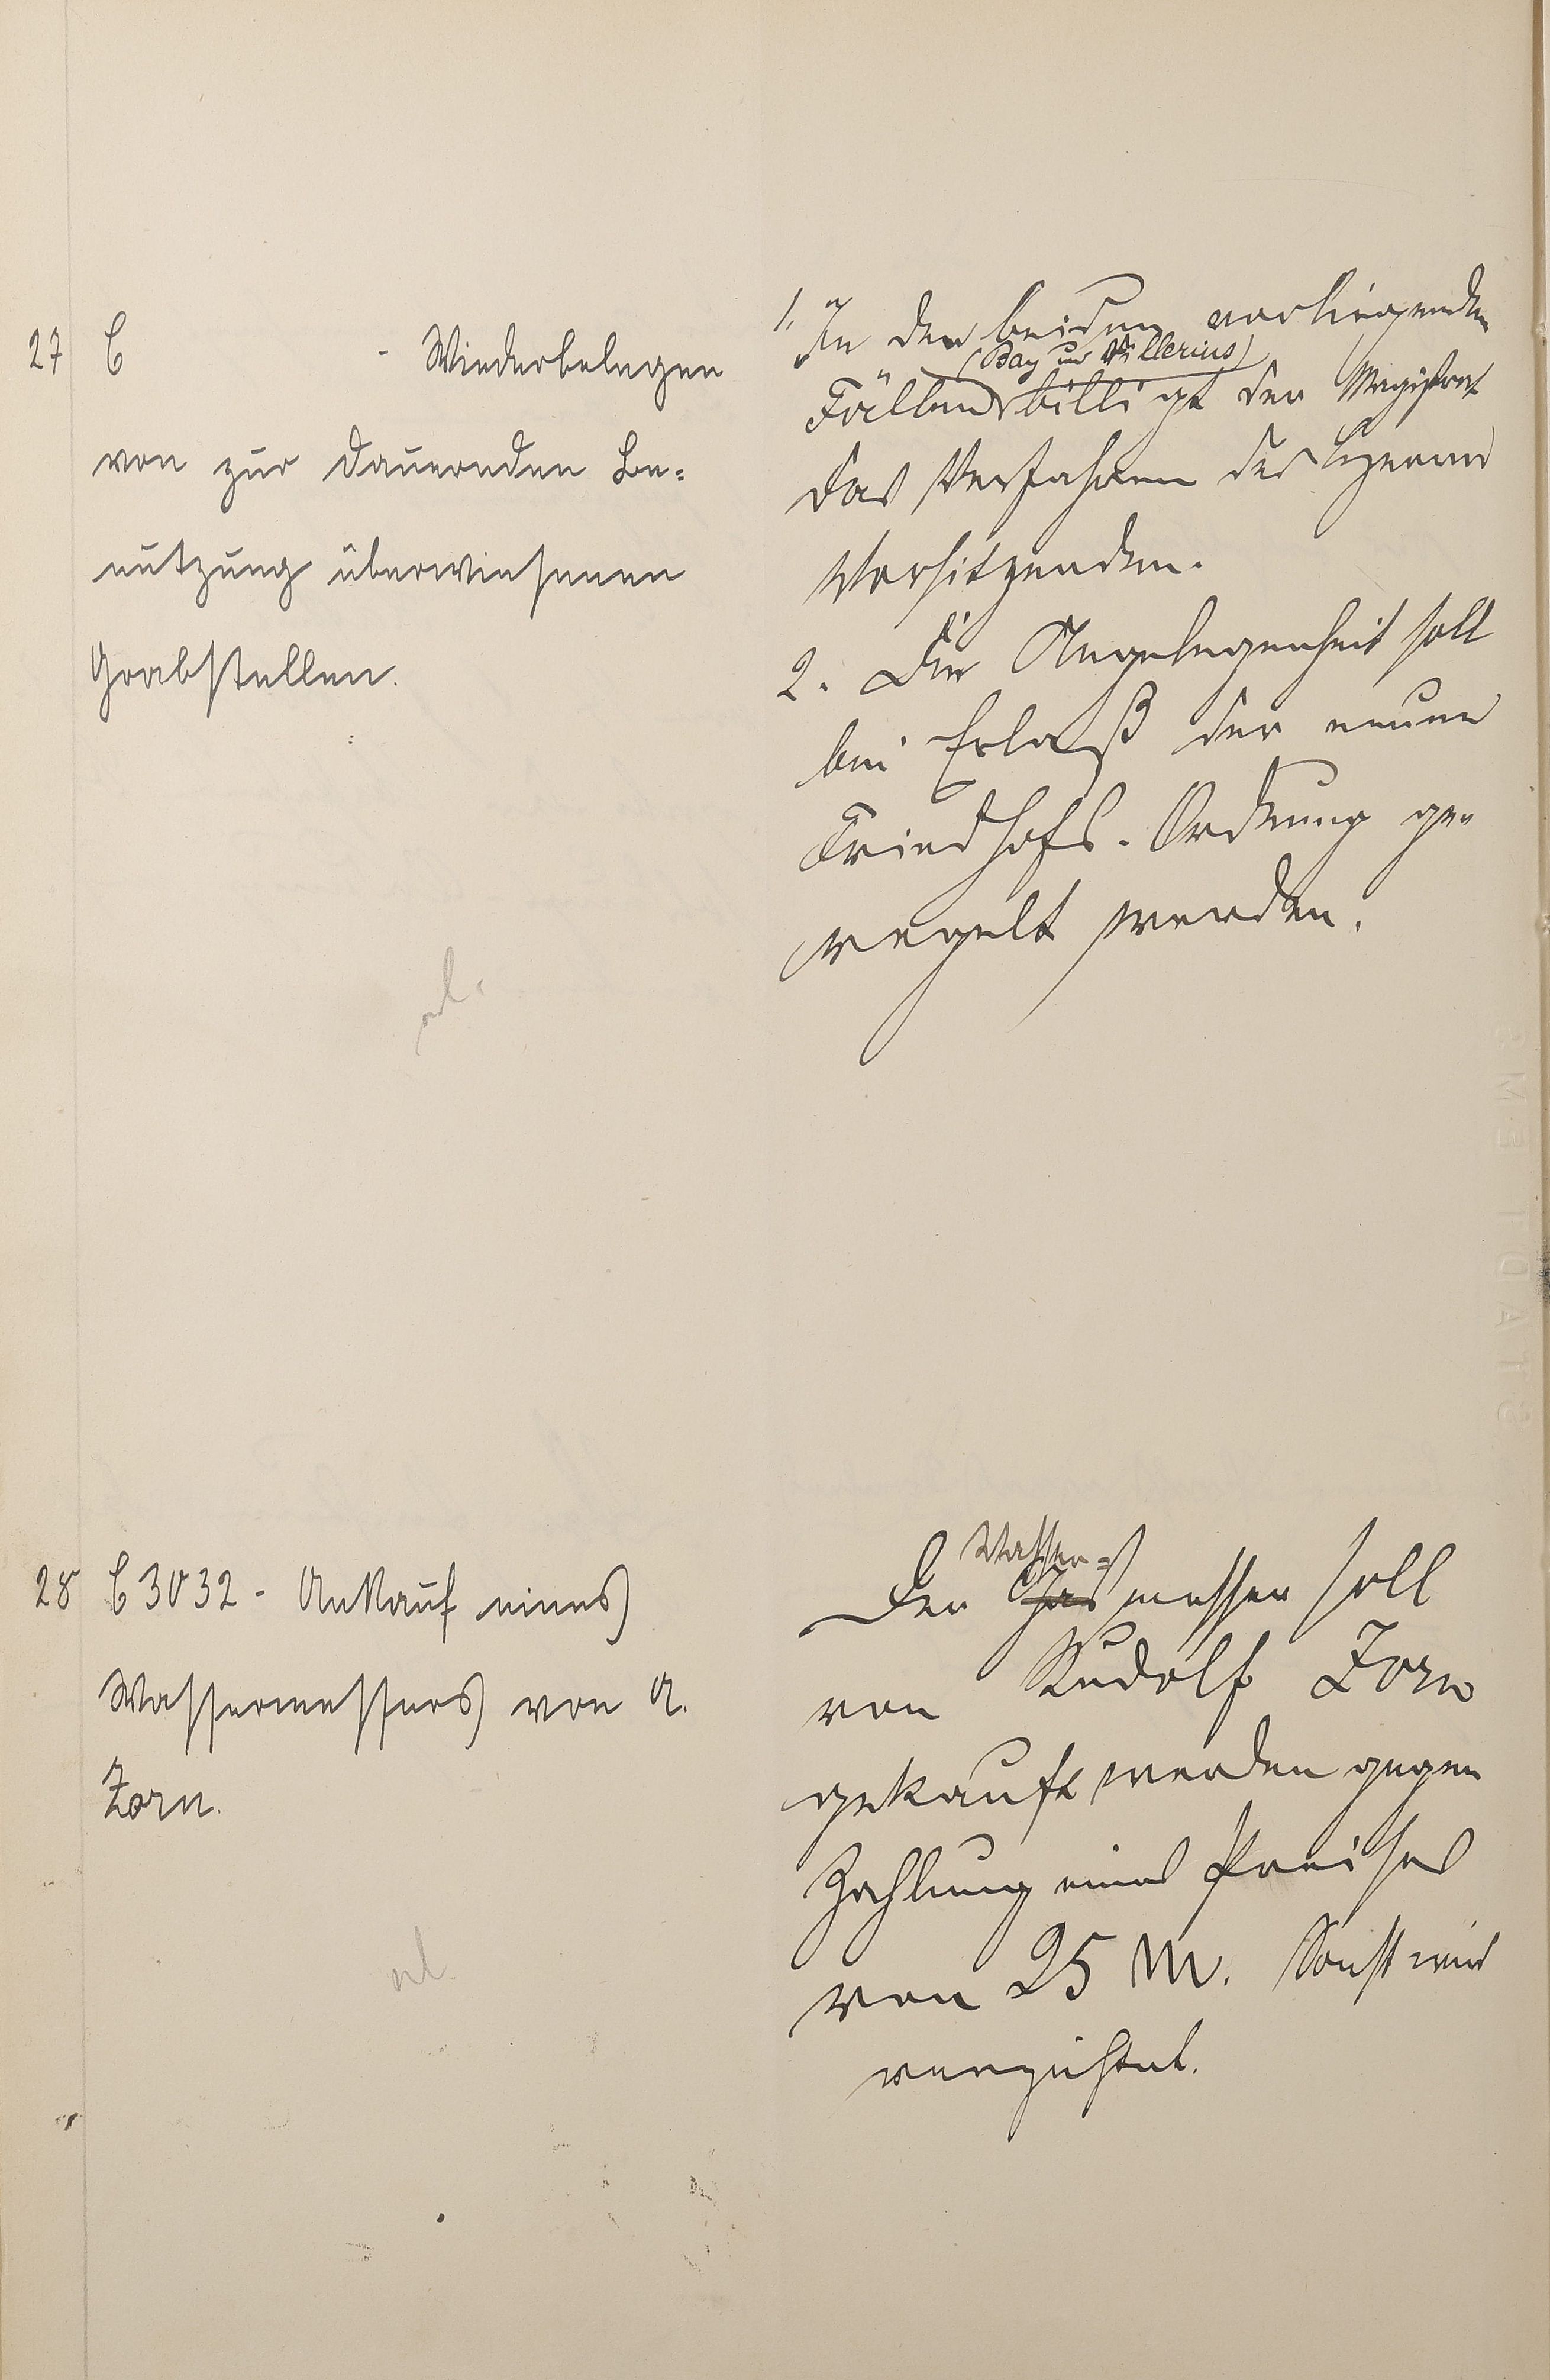 27 C - Wiederbelegen
von zur dauernden Be-
nutzung überwiesenen
Grabstellen.
1. In den beiden vorliegenden
(Bay und Villerius)
Fällen billigt der Magistrat
das Verfahren des Herrn
Vorsitzenden.
2. Die Angelegenheit soll
bei Erlaß der neuen
Friedhofs-Ordnung ge-
regelt werden.
28 C 3032 - Ankauf eines
Wassermessers von R.
Zorn.
Wasser-
Der Gasmesser soll
von Rudolf Zorn
gekauft werden gegen
Zahlung eines Preises
von 25 M. Sonst wird
verzichtet.
STADT EMS